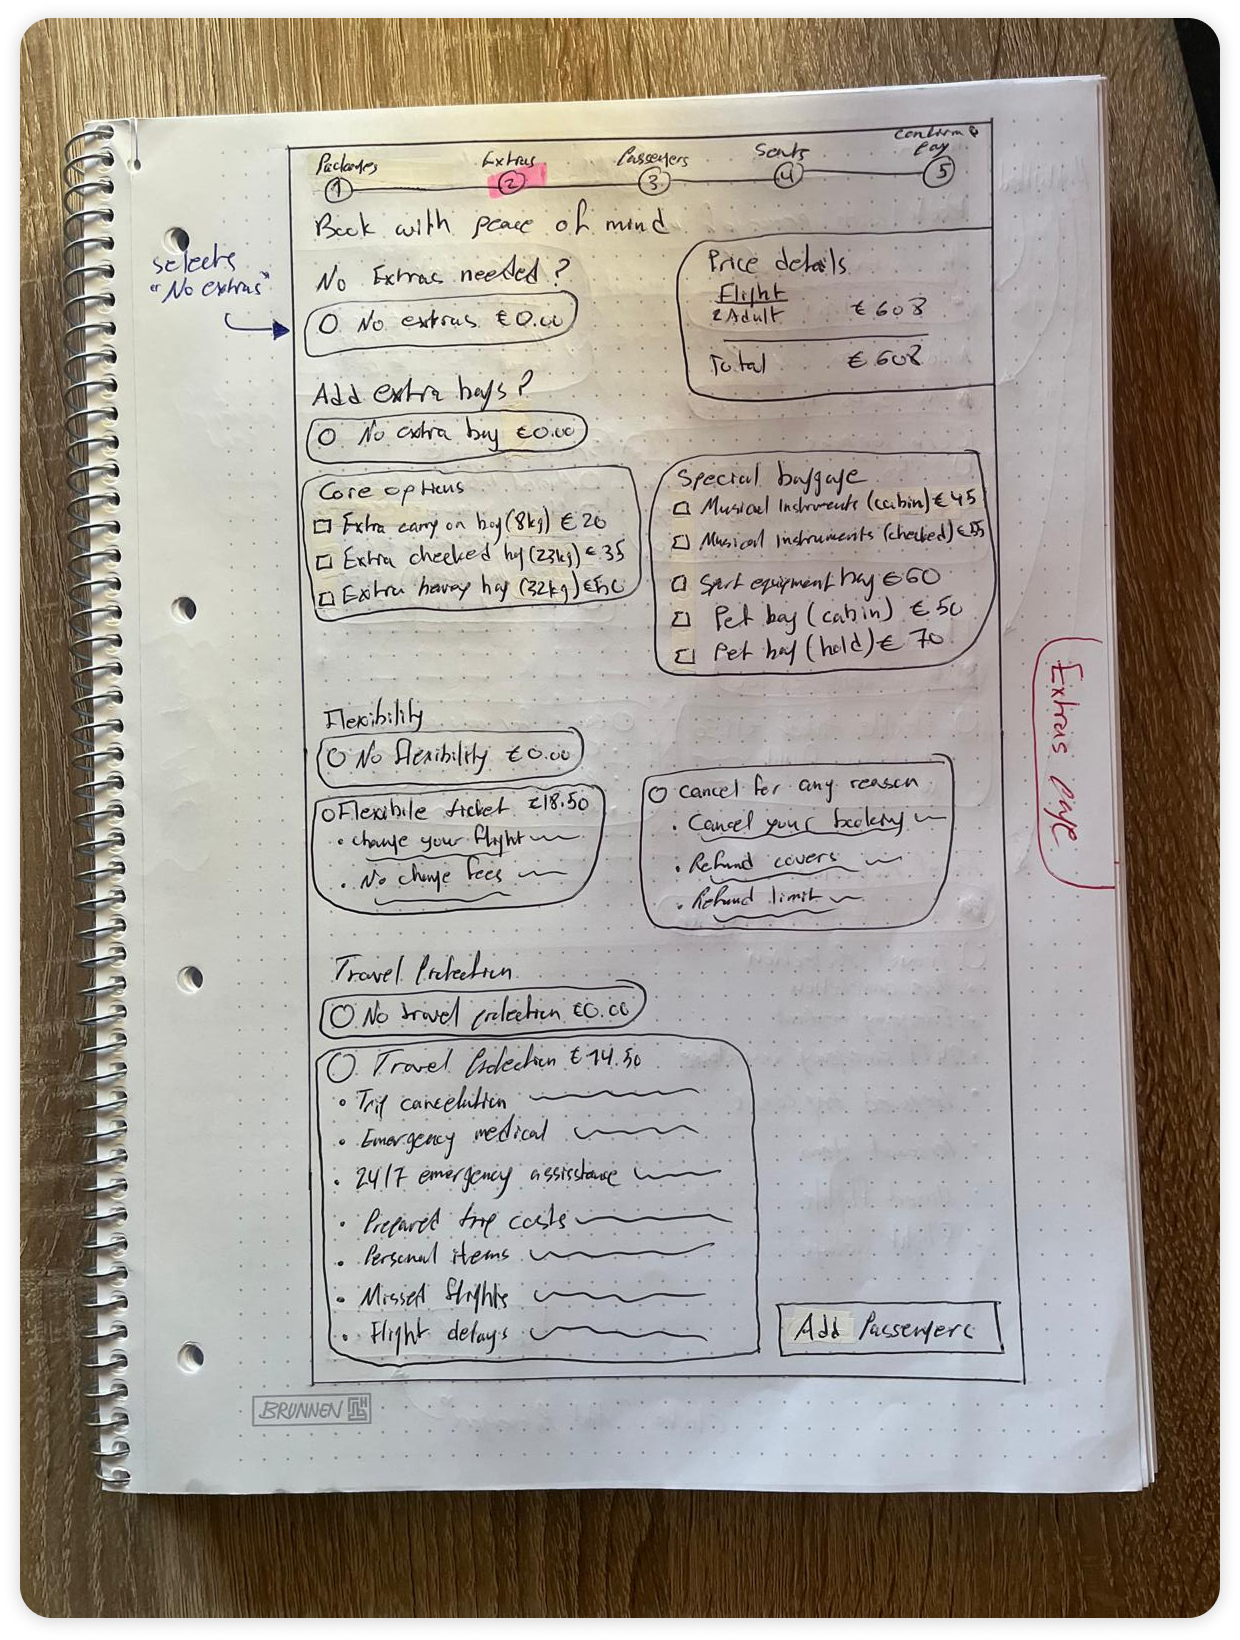 Packages
Extras
Passengers
Seats
Confirm & pay
1
2
3
4
5
Book with peace of mind
selects
or No extras
No Extras needed?
No extras €0.00
Price details
Flight
2 Adult € 608
Total € 608
Add extra bags?
No extra bag €0.00
Core options
Extra carry on bag (8kg) € 20
Extra checked bag (23kg) € 35
Extra heavy bag (32kg) €50
Special baggage
Musical Instruments (cabin) € 45
Musical instruments (checked) € 55
Sport equipment bag € 60
Pet bag (cabin) € 50
Pet bag (hold) € 70
Extras page
Flexibility
No flexibility €0.00
Flexibile ticket €18.50
• Change your flight
• No change fees
Cancel for any reason
• Cancel your booking
• Refund covers
• Refund limit
Travel Protection
No travel protection €0.00
Travel Protection € 14.50
• Trip cancelation
• Emergency medical
• 24/7 emergency assisstance
• Prepared trip costs
• Personal items
• Missed flights
• Flight delays
Add Passengers
BRUNNEN